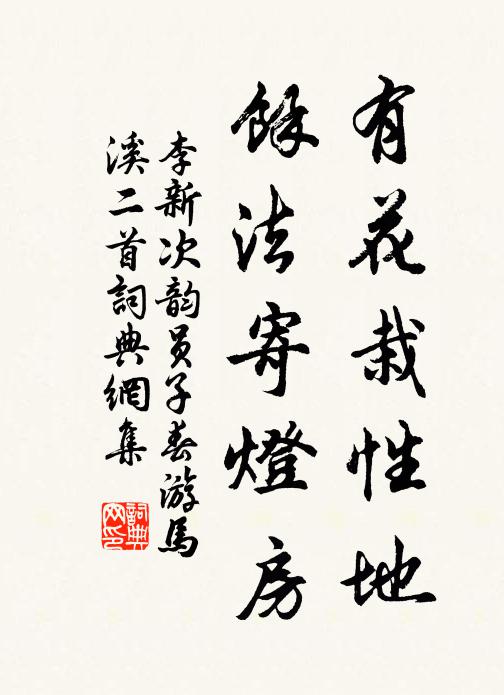 有花栽性地
餘法寄燈房
李新次韵员子春游馬
溪二首詞典網集
詞典
网印